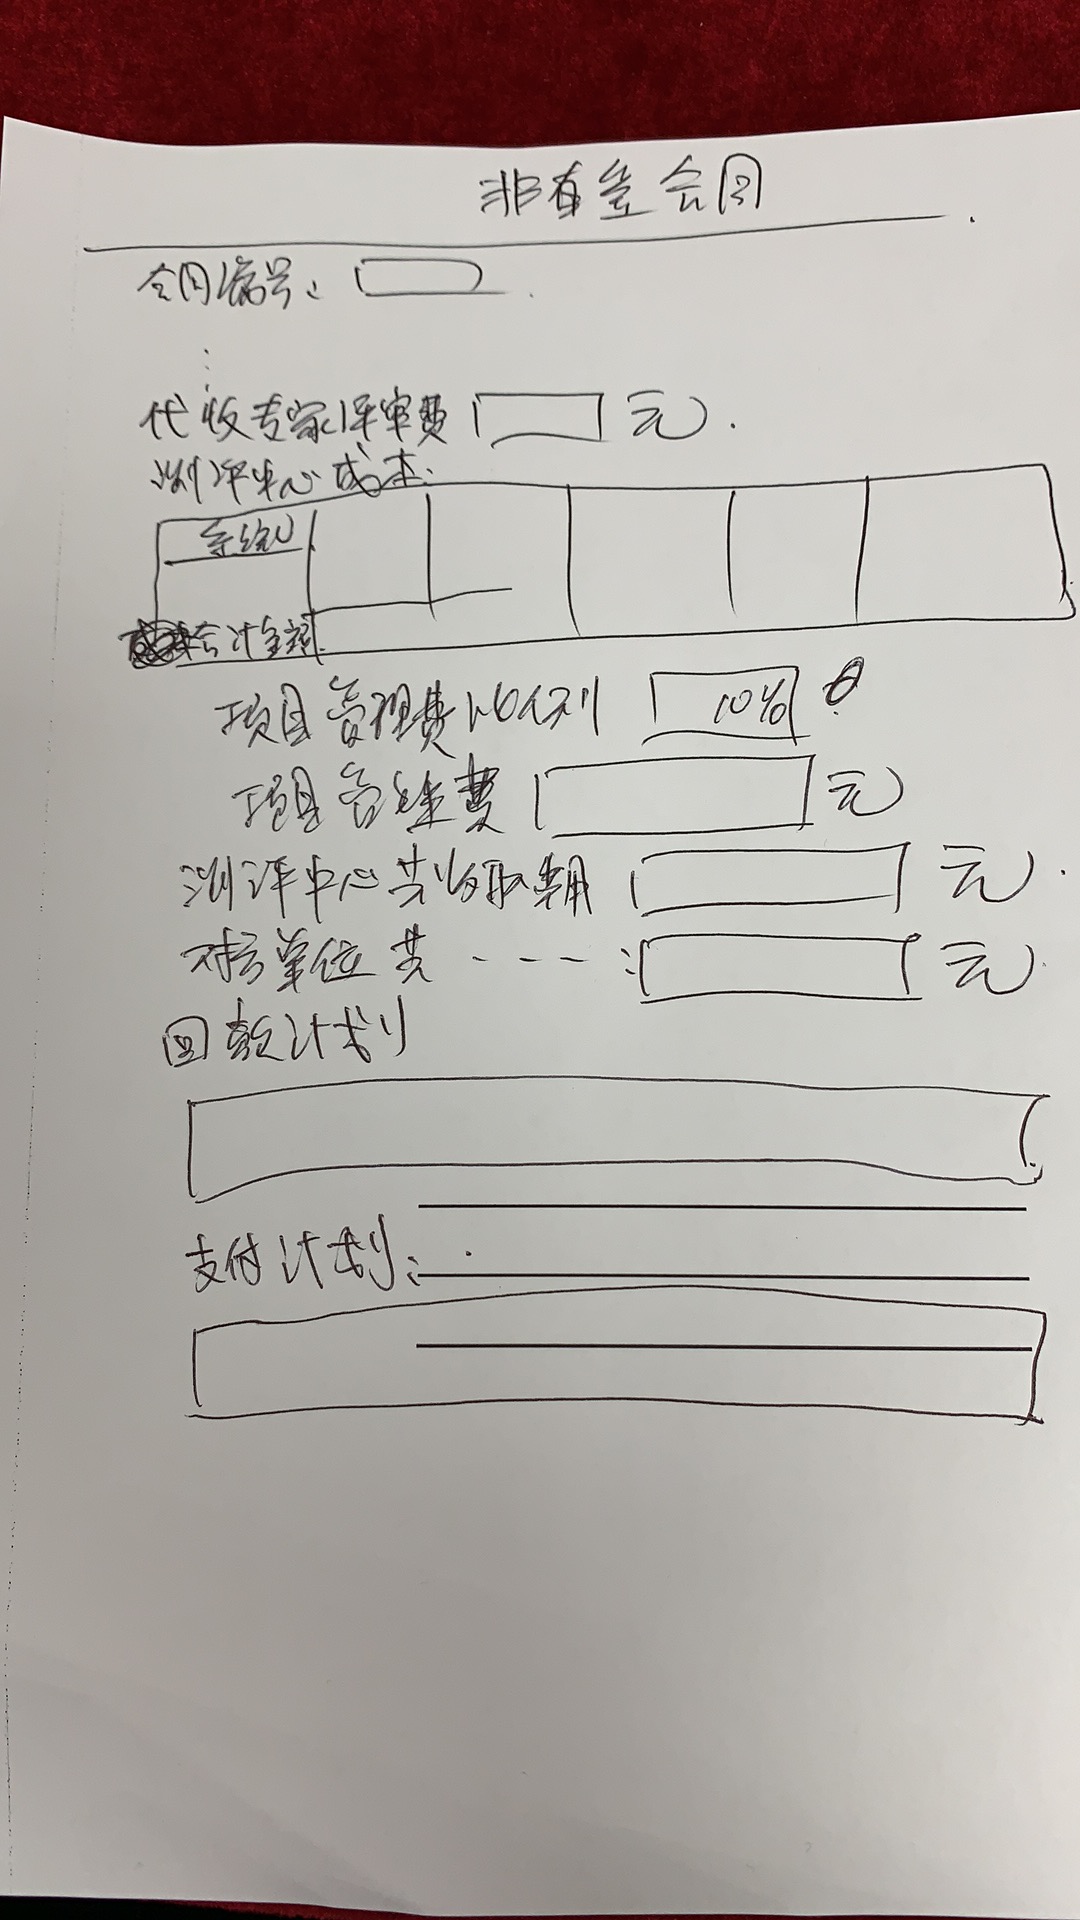 合同编号:
代收专家评审费 元.
测评中心成本:
系统
合计金额
项目管理费比例 10%
项目管理费 元
测评中心共收取费用 元.
单位共 ----: 元
回款计划
支付计划: